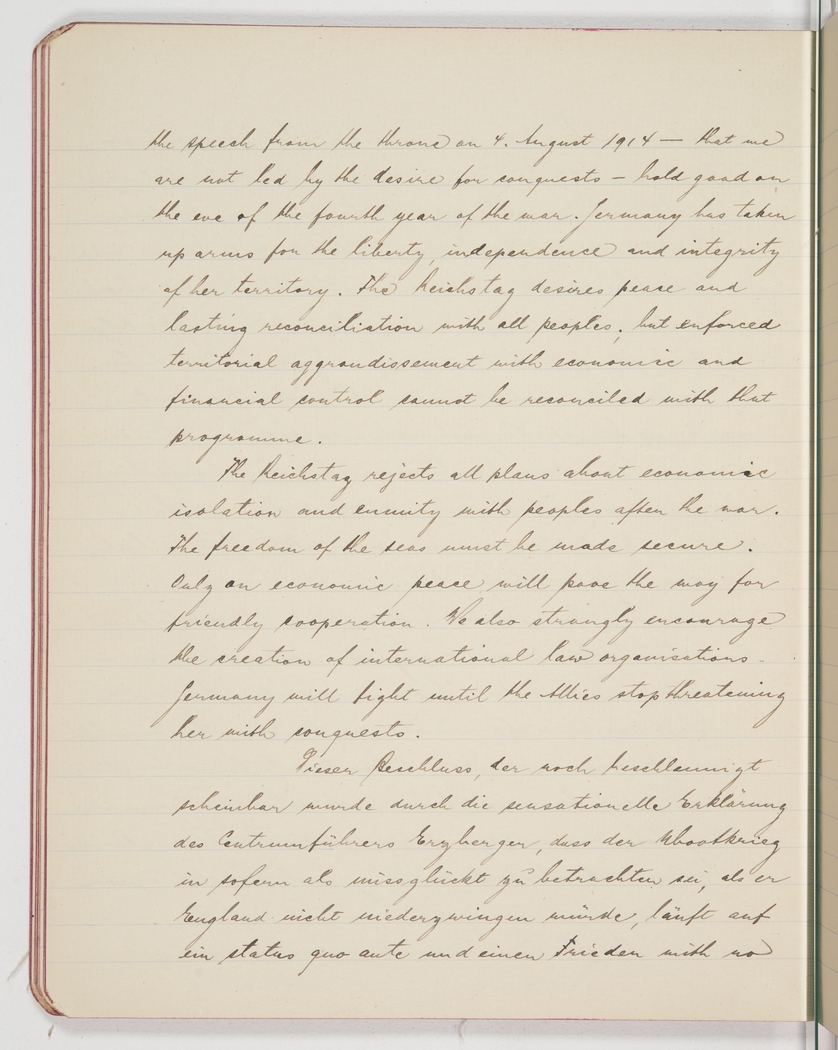 the speech from the throne on 4. August 1914 — that we
are not led by the desire for conquests — hold good on
the eve of the fourth year of the war. Germany has taken
up arms for the liberty, independence and integrity
of her territory. The Reichstag desires peace and
lasting reconciliation with all peoples, but enforced
territorial aggrandissement with economic and
financial control cannot be reconciled with that
programme.
The Reichstag rejects all plans about economic
isolation and enmity with peoples after the war.
The freedom of the seas must be made secure.
Only an economic peace will pave the way for
friendly cooperation. We also strongly encourage
the creation of international law organisations.
Germany will fight until the Allies stop threatening
her with conquests.
Dieser Beschluss, der noch beschleunigt
scheinbar wurde durch die sensationelle Erklärung
des Centrumführers Erzberger, dass der Ubootkrieg
in sofern als missglückt zu betrachten sei, als er
England nicht niederzwingen würde, läuft auf
ein status quo ante und einen Frieden with no